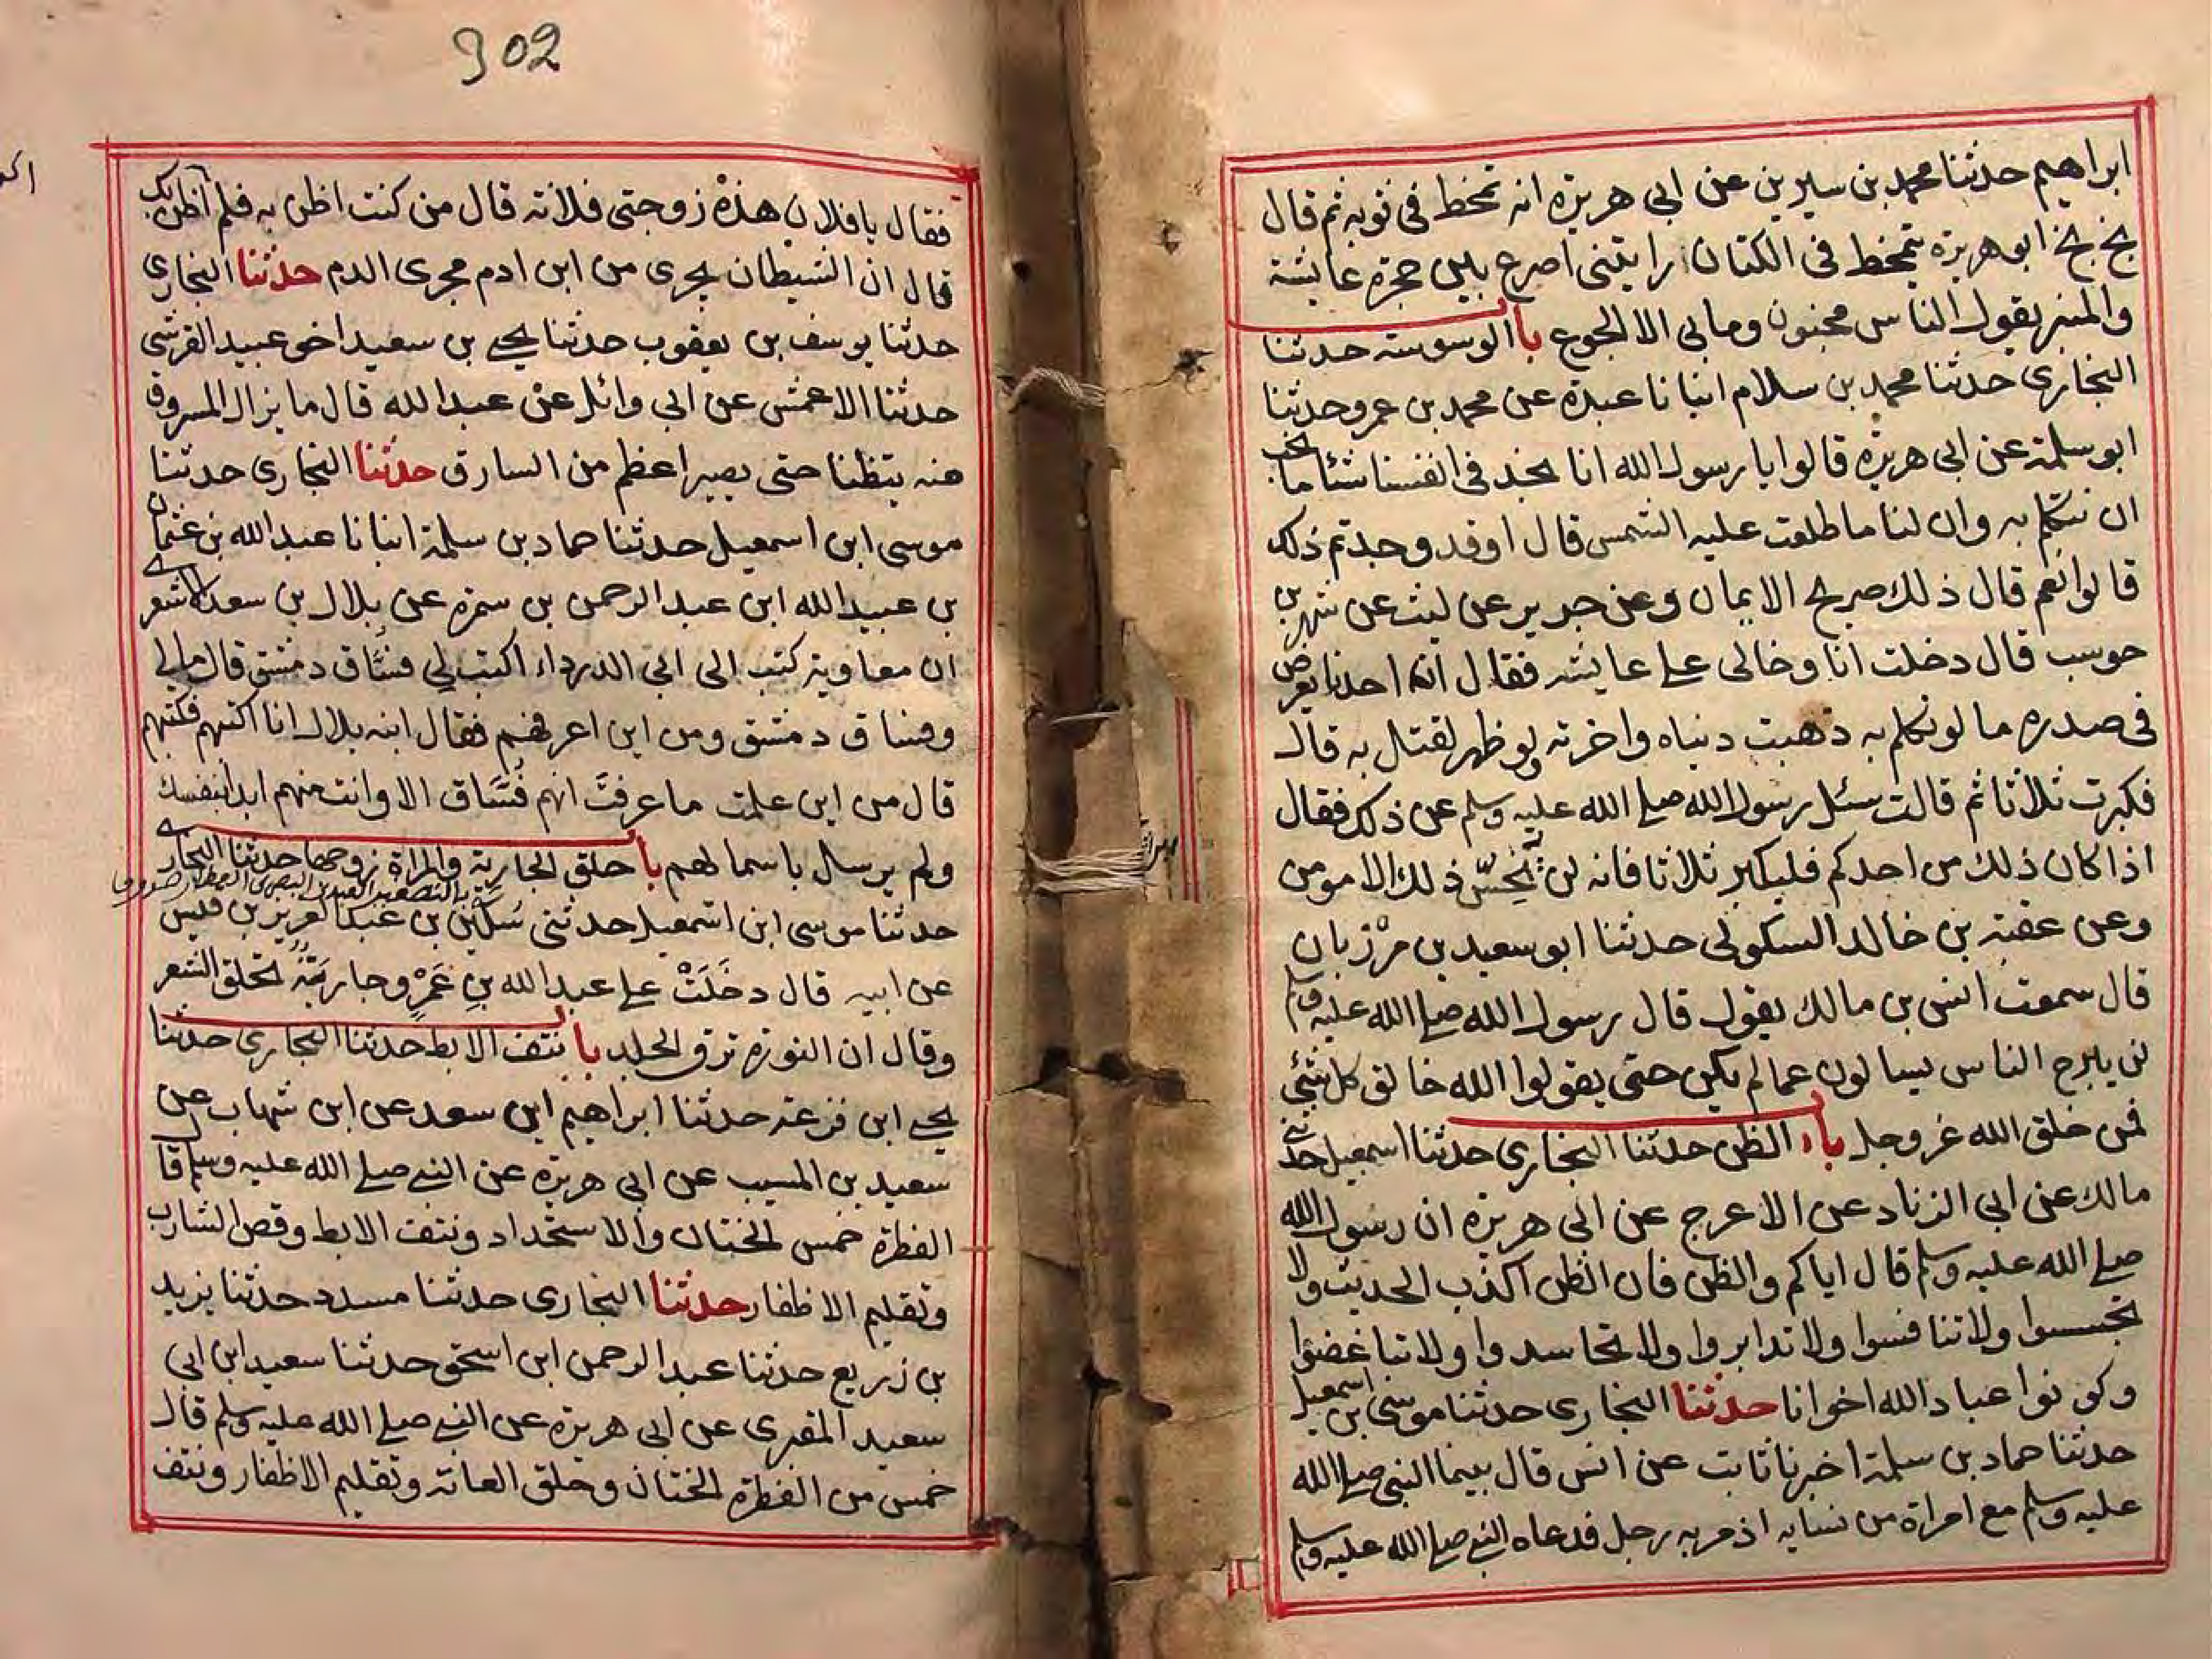 ابراهيم حدثنا محمد بن سيرين عن ابي هريرة انه تمخط في ثوبه ثم قال
بخ بخ ابو هريرة يتمخط في الكتان رايتني اصرع بين حجرة عايشة
والمنبر يقول الناس مجنون وما بي الا الجوع با الوسوسة حدثنا
البخاري حدثنا محمد بن سلام انبانا عبدة عن محمد بن عمرو حدثنا
ابو سلمة عن ابي هريرة قالوا يا رسول الله انا نجد في انفسنا شئا ما نحب
ان نتكلم به وان لنا ما طلعت عليه الشمس قال اوقد وجدتم ذلك
قالوا نعم قال ذلك صريح الايمان وعن جرير عن ليث عن شهر بن
حوسب قال دخلت انا وخالي على عايشه فقال ان احدنا يعرض
في صدره ما لو تكلم به ذهبت دنياه واخرته ولو ظهر لقتل به قال
فكبرت ثلاثا ثم قالت سئل رسول الله صلى الله عليه وسلم عن ذلك فقال
اذا كان ذلك من احدكم فليكبر ثلاثا فانه لن يحس ذلك الا مومن
وعن عقبة بن خالد السكوني حدثنا ابو سعيد بن مرزبان
قال سمعت انس بن مالك يقول قال رسول الله صلى الله عليه وسلم
لن يبرح الناس يسالون عما لم يكن حتى يقولوا الله خالق كل شئي
فمن خلق الله عز وجل باب الظن حدثنا البخاري حدثنا اسمعيل حدثني
مالك عن ابي الزناد عن الاعرج عن ابي هريرة ان رسول الله
صلى الله عليه وسلم قال اياكم والظن فان الظن اكذب الحديث ولا
تجسسوا ولا تنافسوا ولا تدابروا ولا تحاسدوا ولا تباغضوا
وكونوا عباد الله اخوانا حدثنا البخاري حدثنا موسى بن اسمعيل
حدثنا حماد بن سلمة اخبرنا ثابت عن انس قال بينما النبي صلى الله
عليه وسلم مع امراة من نسايه اذ مر به رجل فدعاه النبي صلى الله عليه وسلم
902
فقال يا فلان هذه زوجتي فلانة قال من كنت اظن به فلم اظن بك
قال ان الشيطان يجري من ابن ادم مجرى الدم حدثنا البخاري
حدثنا يوسف بن يعقوب حدثنا يحيى بن سعيد اخو عبيد القرشي
حدثنا الاعمش عن ابي وائل عن عبد الله قال ما يزال المسروق
منه يتظنا حتى يصير اعظم من السارق حدثنا البخاري حدثنا
موسى ابن اسمعيل حدثنا حماد بن سلمة انبانا عبد الله بن عثمان
بن عبيد الله ابن عبد الرحمن بن سمرة عن بلال بن سعد الاشعري
ان معاوية كتب الى ابي الدرداء اكتب لي فساق دمشق قال مالي
وفساق دمشق ومن اين اعرفهم فقال ابنه بلال انا اكتبهم فكتبهم
قال من اين علمت ما عرفت انهم فساق الا وانت منهم ابدا بنفسك
ولم يرسل باسمائهم با حلق الجارية والمراة زوجها حدثنا البخاري
حدثنا موسى ابن اسمعيل حدثني سكين بن عبد العزيز بن قيس
عن ابيه قال دخلت على عبد الله بن عمر وجارية تحلق الشعر
وقال ان النورة ترق الجلد با نتف الابط حدثنا البخاري حدثنا
يحيى ابن قزعة حدثنا ابراهيم ابن سعد عن ابن شهاب عن
سعيد بن المسيب عن ابي هريرة عن النبي صلى الله عليه وسلم قال
الفطرة خمس الختان والاستحداد ونتف الابط وقص الشارب
وتقليم الاظفار حدثنا البخاري حدثنا مسدد حدثنا يزيد
بن زريع حدثنا عبد الرحمن ابن اسحق حدثنا سعيد ابن ابي
سعيد المقبري عن ابي هريرة عن النبي صلى الله عليه وسلم قال
خمس من الفطرة الختان وحلق العانة وتقليم الاظفار ونتف